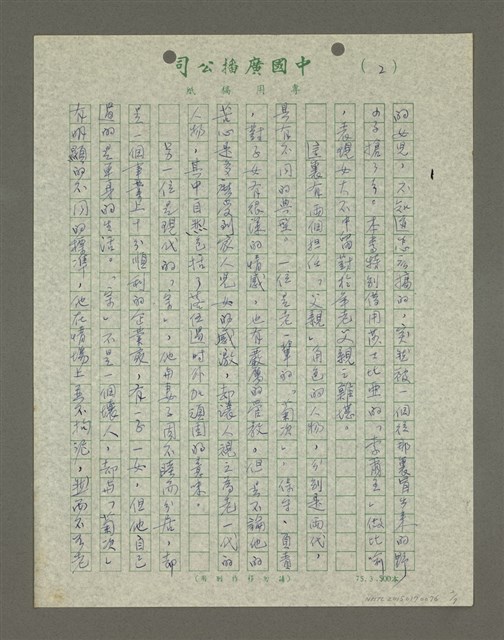 (2)
司公播廣國中
紙稿用專
的女兒,不知道怎麼搞的,突然被一個從那裏冒出來的野
小子搶了去。本書特別借用莎士比亞的「李爾王」做比喻
,表現女大不中留對於年老父親之難堪。
這裏有兩個擔任「父親」角色的人物,分別是兩代,
具有不同的典型。一位是老一輩的「菊次」,保守、負責
,對子女有很深的情感,也有嚴厲的管教,但是不論他的
苦心是多麼受到家人兒女的感激,卻讓人視之為老一代的
人物,其中自然包括了落伍過時外加頑固的意味。
另一位是現代的「宰」,他與妻子因不睦而分居,卻
是一個事業上十分順利的企業家,有一子一女,但他自己
過的是單身的生活。「宰」不是一個壞人,卻與「菊次」
有明顯的不同的標準,他在情場上並不拘泥,然而不
(請勿作他用)
75.3.500本